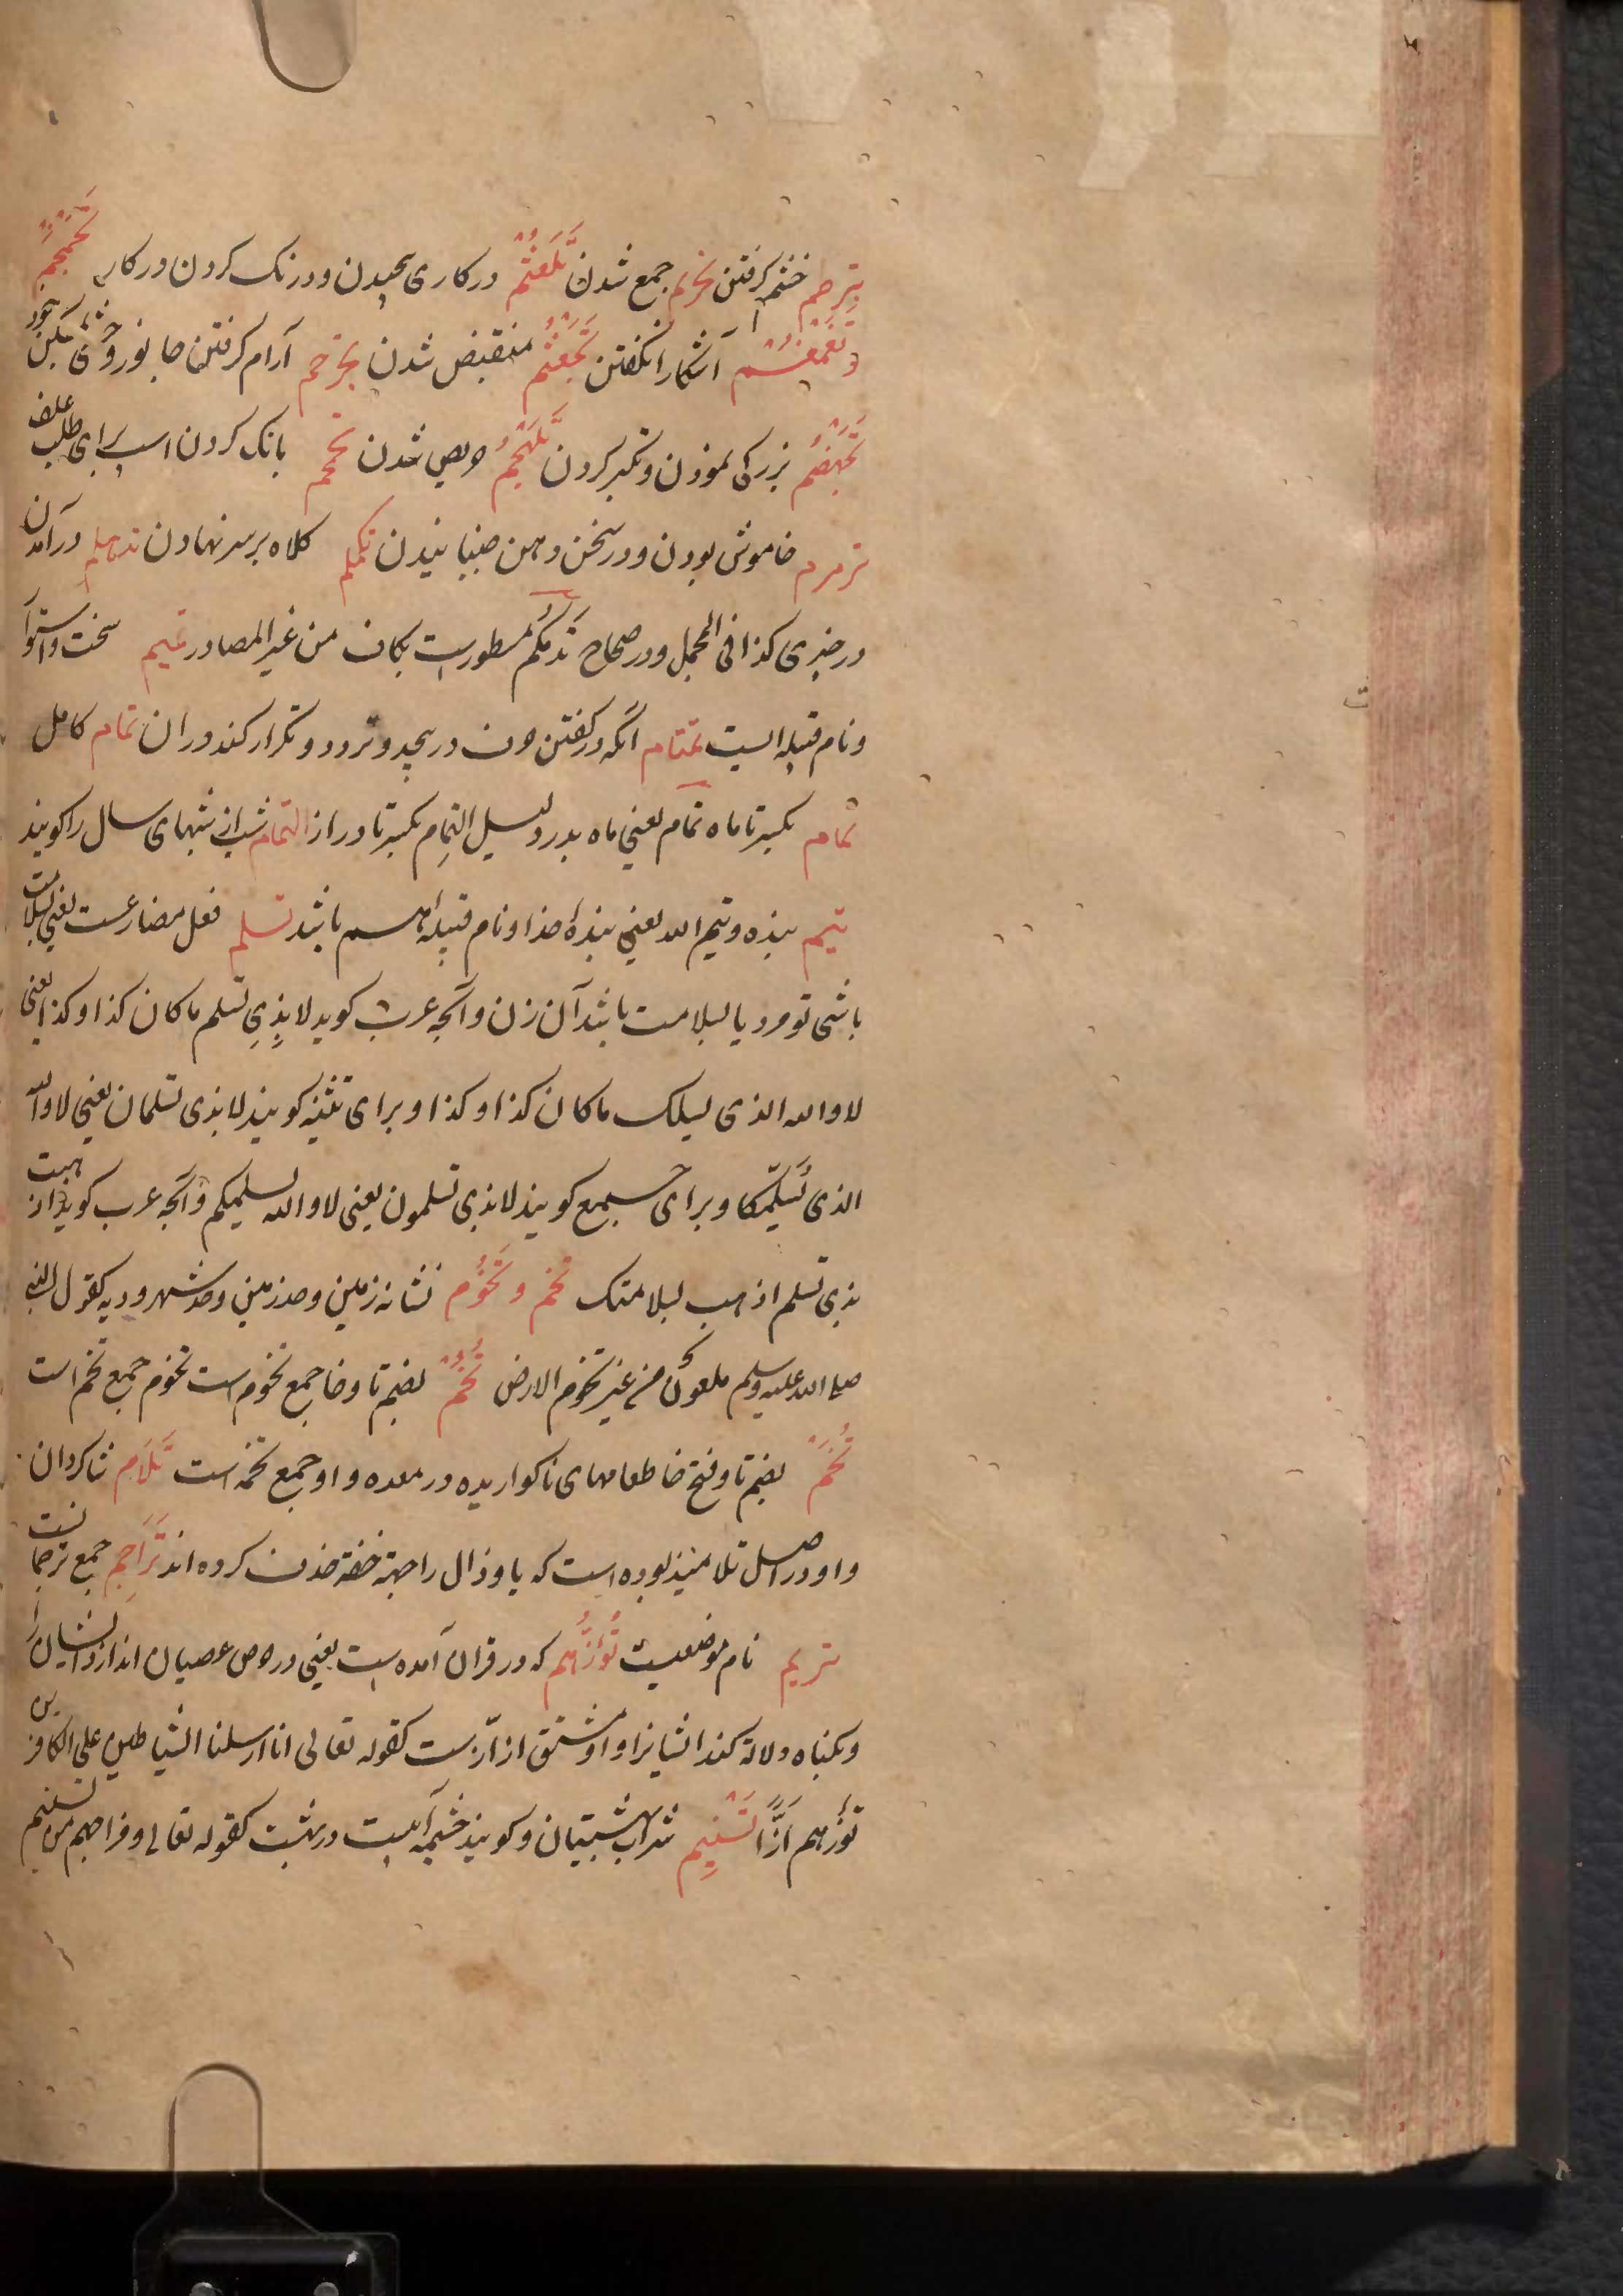 تبرطم خشم گرفتن تجرثم جمع شدن تَلَعْثُمْ در کاری پیچیدن و درنک کردن در کار تَجَمْجُمْ
و تَغَمْغُمْ آشکارا نکفتن تَجَعْثُمْ منقبض شدن تجرجم آرام کرفتن جانور وحشی
تَجَهْضُمْ بزرکی نمودن و تکبر کردن تَلَهْجُمْ حریص شدن تحمحم بانک کردن اسپ برای طلب علف
ترمرم خاموش بودن و در سخن دهن جنبانیدن تکمکم کلاه بر سر نهادن تدهلم درآمدن
در چیزی کذا فی المجمل و در صحاح تَدَمْکُم مسطورست بکاف من غیر المصادر تمیم سخت و استوار
و نام قبیله ایست تمتام آنکه در کفتن حرف در پیچد و تردد و تکرار کند دران تمام کامل
تمام بکسر تا ماه تمام یعنی ماه بدر و لیل التِمام بکسر تا دراز التمام شب از شبهای سال را کویند
تیم بنده و تیم الله یعنی بندهٔ خدا و نام قبیله هم باشد تسلم فعل مضارعست یعنی بسلامت
باشی تو مرد یا بسلامت باشد آن زن و آنچه عرب کوید لا بِذِی تسلم ما کان کذا و کذا یعنی
لا والله الذی یسلمک ما کان کذا و کذا و برای تثنیه کویند لا بذی تسلمان یعنی لا والله
الذی یُسَلِّمَکما و برای جمع کویند لا بذی تسلمون یعنی لا والله یسلمیکم و آنچه عرب کوید اذهب
بذی تسلم اذهب بسلامتک تخم و تَخُوْم نشانه زمین و حد زمین و حد شهر و دیه کقول النبی
صلی الله علیه وسلم ملعون من غیر تخوم الارض تُخُمْ بضم تا و خا جمع تخوم است تخوم جمع تخم است
تُخَمْ بضم تا و فتح خا طعامهای ناکواریده در معده و او جمع تخمه است تَلَام شاکردان
و او در اصل تلامیذ بوده است که یا و ذال را جهة خفة حذف کرده اند تَرَاجِم جمع ترجمانست
تریم نام موضعیست تَؤُزُّهم که در قرآن آمده است یعنی در حرص عصیان اندازد ایشان را
و بکناه دلالة کند ایشانرا و او مشتق از ازّست کقوله تعالی انا ارسلنا الشیاطین علی الکافرین
تؤزهم اَزًّا تَسْنِیم شراب بهشتیان و کویند چشمه آبیست در بهشت کقوله تعالی و مزاجهم من تسنیم